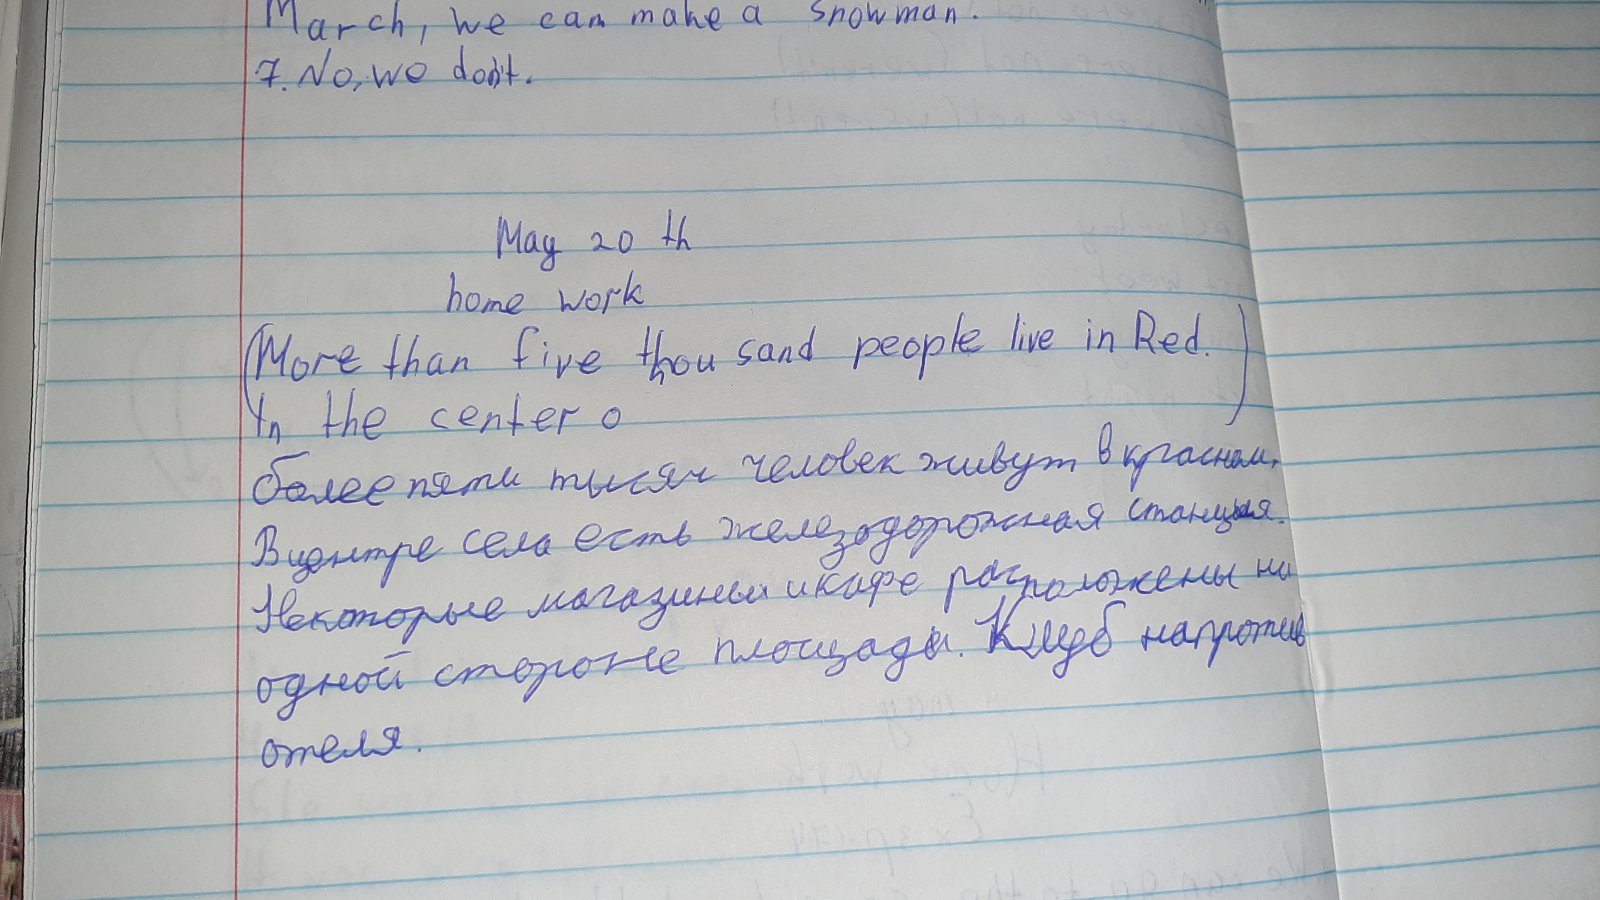 March, we can make a snowman.
7. No, we don't.
May 20 th
home work
(More than five thousand people live in Red.
In the center o)
более пяти тысяч человек живут в красном.
В центре села есть железодорожная станция.
Некоторые магазины и кафе расположены на
одной стороне площади. Клуб напротив
отеля.